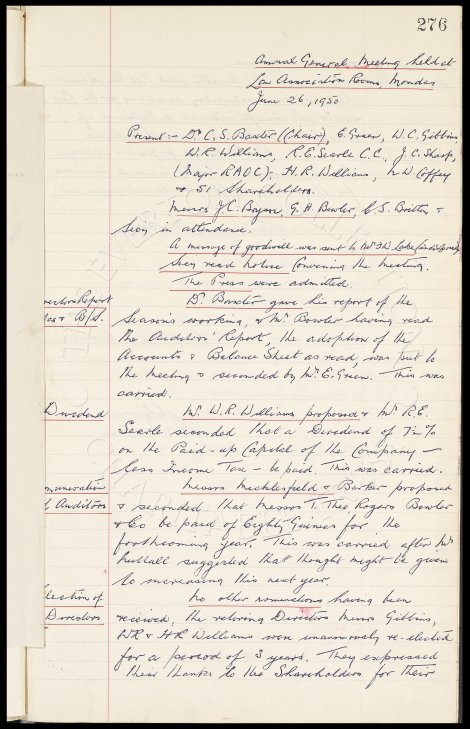 276
Annual General Meeting held at
Law Association Rooms, Monday
June 26, 1950
Present:- Dr. C. S. Baxter (Chair), E. Green, W. C. Gibbins,
W. R. Williams, R. E. Searle C.C., J. C. Sharp,
(Major RAOC), H. R. Williams, N. W. Coffey
& 51 Shareholders.
Messrs J. C. Bryson, G. H. Bowler, C. S. Britten &
Secy in attendance.
A message of goodwill was sent to Mr
Secy read notice convening the meeting.
The Press were admitted.
Dr. Baxter gave his report of the
Season's working, & Mr Bowler having read
the Auditors' Report, the adoption of the
Accounts & Balance Sheet as read, was put to
the Meeting & seconded by Mr. E. Green. This was
carried.
Report
B/S.
Dividend
Mr. W. R. Williams proposed & Mr R. E.
Searle seconded that a Dividend of 7½%
on the Paid-up Capital of the Company –
less Income Tax – be paid. This was carried.
muneration
Auditors
Messrs Micklesfield & Barker proposed
& seconded that Messrs T. Theo Rogers Bowler
& Co be paid of Eighty Guineas for the
forthcoming year. This was carried after Mr
Nuttall suggested that thought might be given
to increasing this next year.
lection of
Directors
No other nominations having been
received, the retiring Directors Messrs Gibbins,
WR & HR Williams were unanimously re-elected
for a period of 3 years. They expressed
their thanks to the Shareholders for their